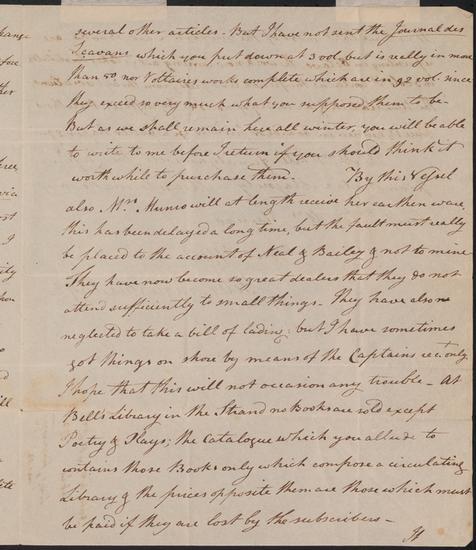 several other articles. But I have not sent the Journal des
Scavans which you put down at 3 vol. but is really in more
than 50, nor Voltaires works complete which are in 92 vol. since
they exceed so very much what you supposed them to be.
But as we shall remain here all winter, you will be able
to write to me before I return if you should think it
worth while to purchase them. By this Vessel
also, Mrs. Munro will at length receive her earthen ware,
this has been delayed a long time, but the fault must really
be placed to the account of Neal & Bailey & not to mine
They have now become so great dealers that they do not
attend sufficiently to small things. They have also
neglected to take a bill of lading; but I have sometimes
got things on shore by means of the Captains rect. only
I hope that this will not occasion any trouble - At
Bell's Library in the Strand no Books are sold except
Poetry & Plays; the Catalogue which you allude to
contains those Books only which compose a circulating
Library & the prices opposite them are those which must
be paid if they are lost by the subscribers -